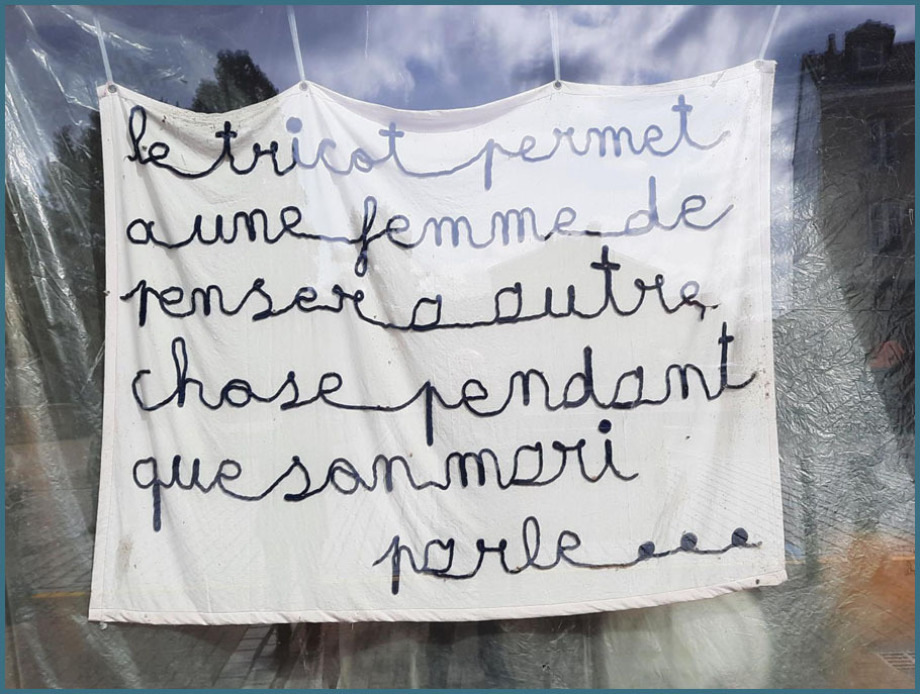 le tricot permet
a une femme de
penser a autre
chose pendant
que son mari
parle...